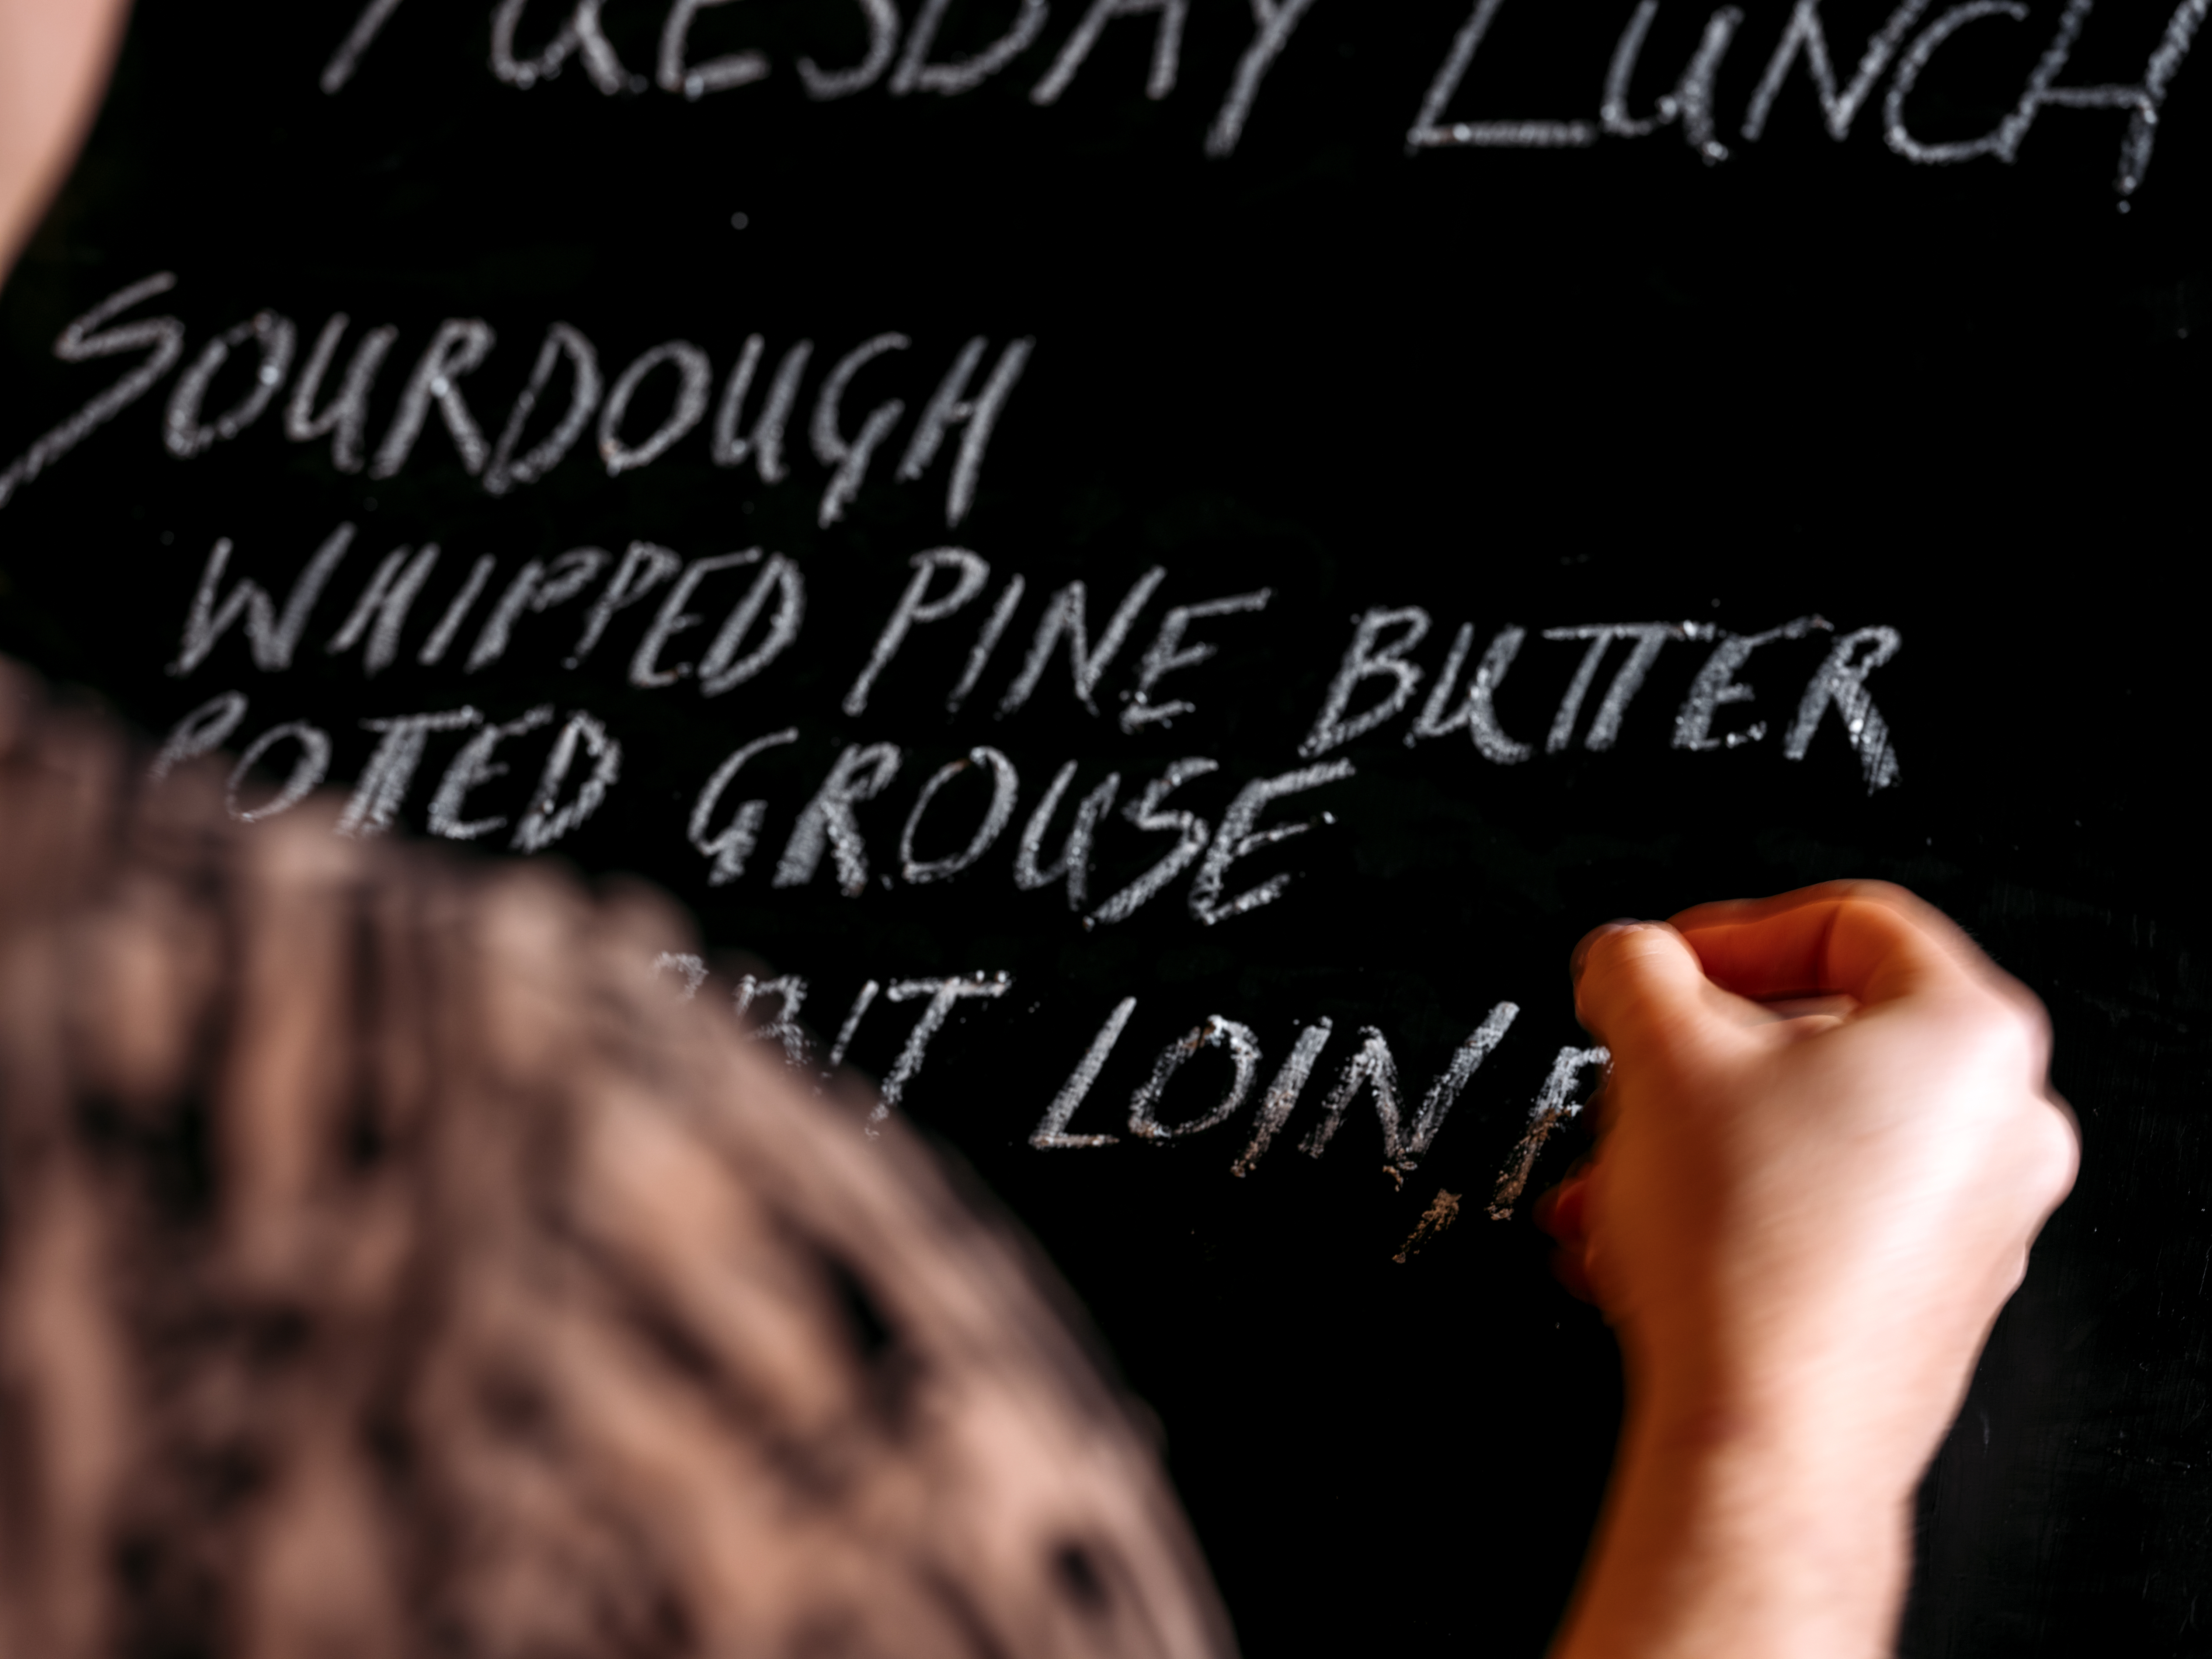 TUESDAY LUNCH
SOURDOUGH
WHIPPED PINE BUTTER
POTTED GROUSE
LOIN,